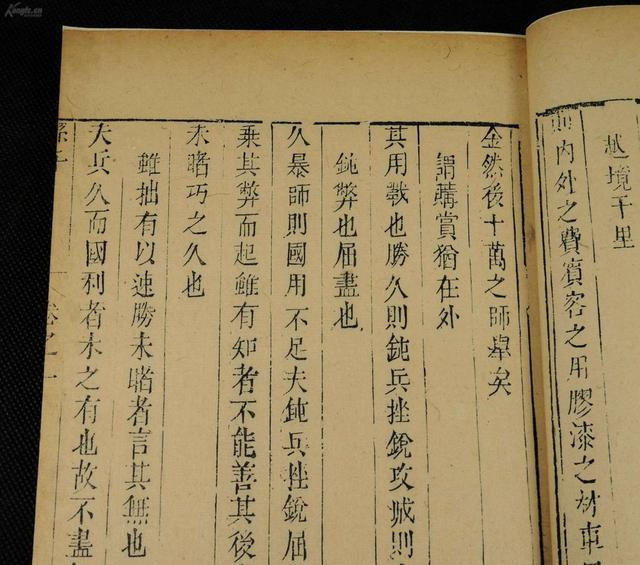 越境千里
內外之費賓客之用膠漆之材車
金然後十萬之師舉矣
謂購賞猶在外
其用戰也勝久則鈍兵挫銳攻城則
鈍弊也屈盡也
久暴師則國用不足夫鈍兵挫銳屈
乘其弊而起雖有知者不能善其後
未睹巧之久也
雖拙有以速勝未睹者言其無也
夫兵久而國利者未之有也故不盡
孫子
卷之一
Kongfz.cn